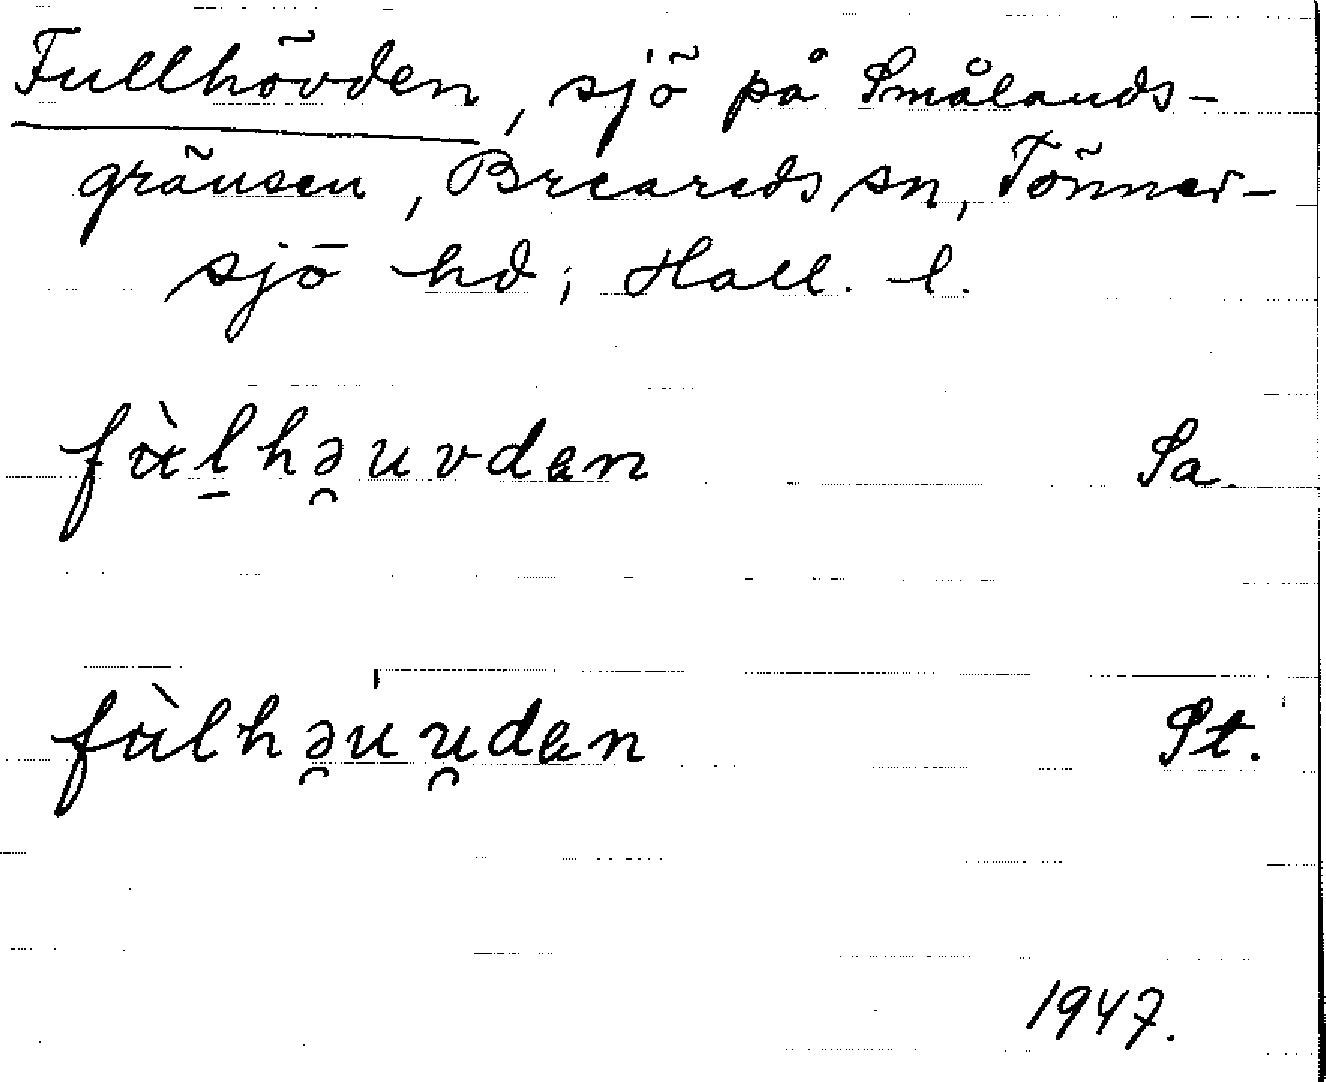 Fullhövden, sjö på Smålands-
gränsen, Breareds sn, Tönner-
sjö hd, Hall. l.
fàl̠hə̯uvden Sa.
fàlhə̯uu̯den St.
1947.